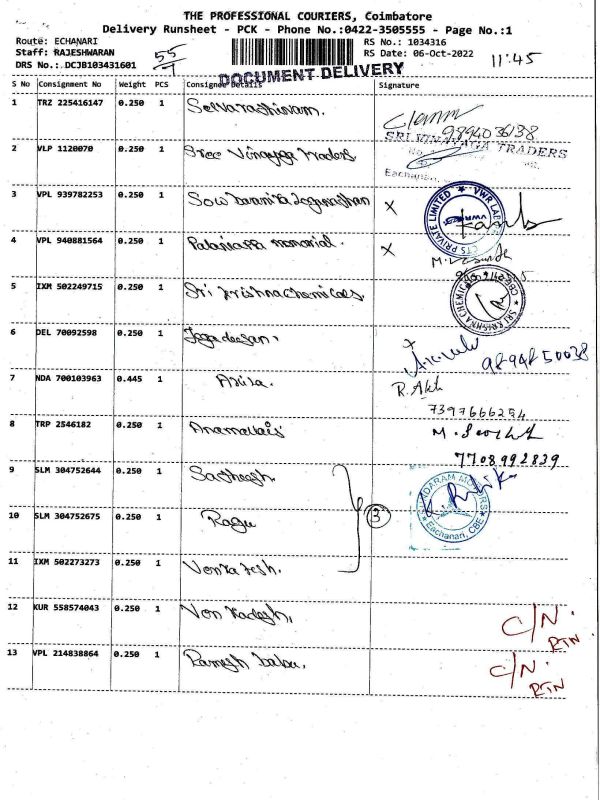 THE PROFESSIONAL COURIERS, Coimbatore
Delivery Runsheet - PCK - Phone No.:0422-3505555 - Page No.:1
Route: ECHANARI
RS No.: 1034316
Staff: RAJESHWARAN
RS Date: 06-Oct-2022
DRS No.:.DCJB103431601
55/1
11:45
DOCUMENT DELIVERY
S No Consignment No Weight PCS Consignee Details Signature
1 TRZ 225416147 0.250 1 Selvarathinam.
9894036138
2 VLP 1120070 0.250 1 Sree Vinayaga Traders
SRI VINAYAGA TRADERS
Eachanari,
3 VPL 939782253 0.250 1 X
CTS PRIVATE LIMITED ★ VWR LAB
VWR
4 VPL 940881564 0.250 1 Palaniappa memorial. X
5 IXM 502249715 0.250 1 Sri Krishna Chemicals
★ SRI KRISHNA CHEMICALS CBE
6 DEL 70092598 0.250 1 Jegadeesan.
9894850038
7 NDA 700103963 0.445 1
R.
7397666254
8 TRP 2546182 0.250 1 Anamallais
M.
7708992839
9 SLM 304752644 0.250 1 Satheesh
SUNDARAM MOTORS
★ Eachanari, CBE ★
10 SLM 304752675 0.250 1 Ragu
3
11 IXM 502273273 0.250 1 Venkatesh.
12 KUR 558574043 0.250 1 Venkadesh.
C/N.
RTN
13 VPL 214838864 0.250 1 Ramesh babu.
C/N.
RTN